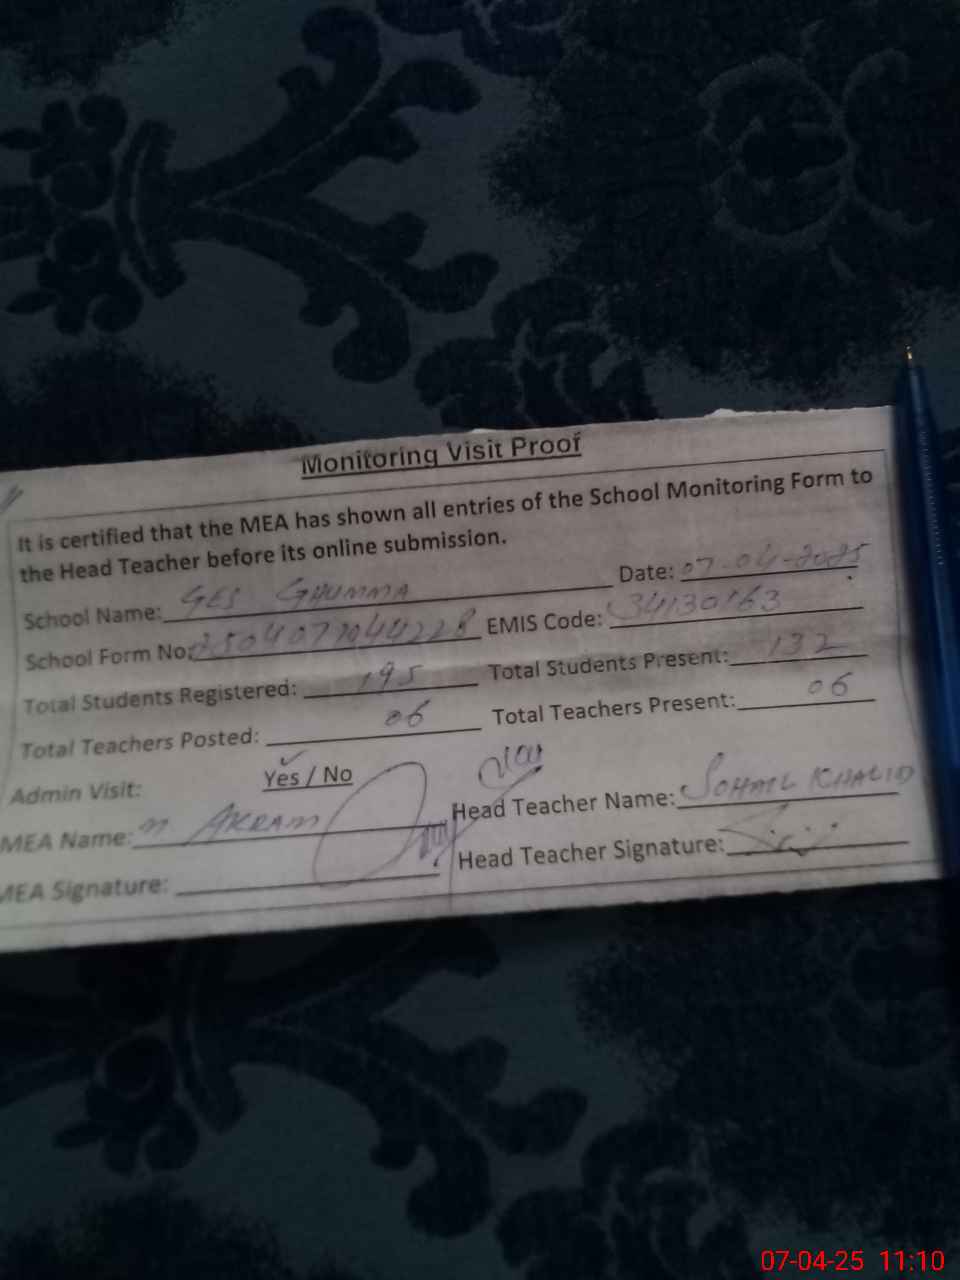 Monitoring Visit Proof
It is certified that the MEA has shown all entries of the School Monitoring Form to
the Head Teacher before its online submission.
School Name: GES GHUMMA Date: 07-04-2025
School Form No: EMIS Code: 34130163
Total Students Registered: 195 Total Students Present: 132
Total Teachers Posted: 06 Total Teachers Present: 06
Admin Visit: Yes / No
MEA Name: M AKRAM Head Teacher Name: SOHAIL KHALID
MEA Signature: Head Teacher Signature:
07-04-25 11:10